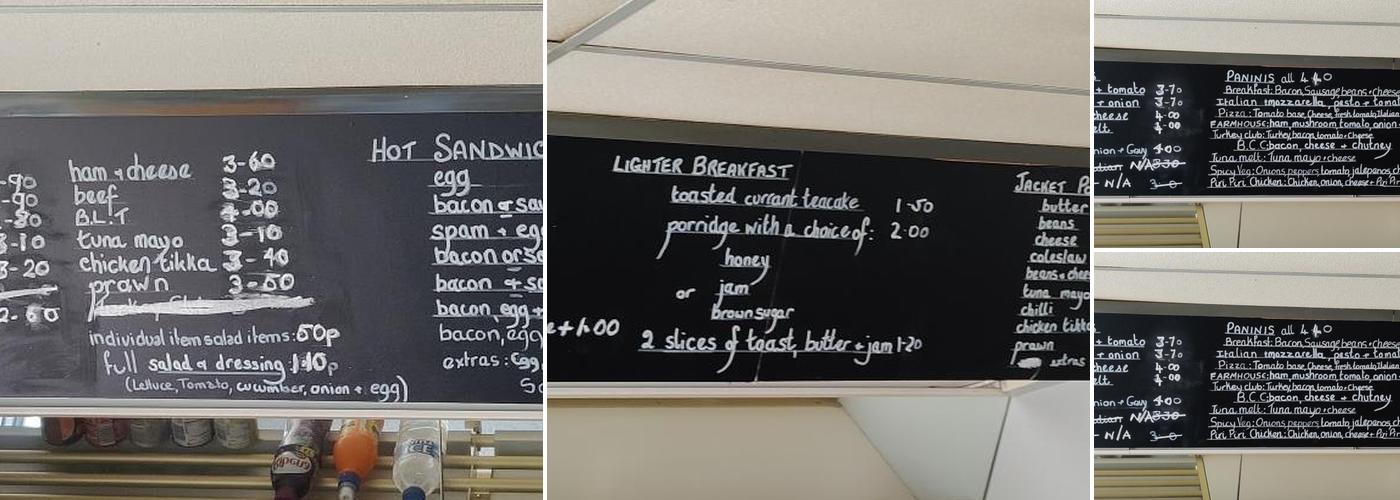 ham + cheese 3-60
beef 3-20
B.L.T 4-00
tuna mayo 3-10
chicken tikka 3-40
3-20 prawn 3-50
2-60
individual item salad items: 50p
full salad + dressing 1.10p
(Lettuce, Tomato, cucumber, onion + egg)
HOT SANDWIC
egg
bacon or sau
spam + egg
bacon or sa
bacon + sa
bacon, egg +
bacon, egg,
extras: egg,
LIGHTER BREAKFAST
toasted currant teacake 1-50
porridge with a choice of: 2.00
honey
or jam
brown sugar
e + 1.00
2 slices of toast, butter + jam 1-20
JACKET PO
butter
beans
cheese
coleslaw
beans + chees
tuna mayo
chilli
chicken tikka
prawn
extras
PANINIS all 4.40
+ tomato 3-70
+ onion 3-70
cheese 4-00
elt 4-00
onion + Gavy 4.00
N/A
- N/A
Breakfast: Bacon, Sausage, beans + cheese
Italian: mozzarella, pesto + toma
Pizza: Tomato base, Cheese, fresh tomato, Italian
FARMHOUSE: ham, mushroom, tomato, onion
Turkey club: Turkey, bacon, tomato + Cheese
B.C.C: bacon, cheese + chutney
Tuna melt: Tuna mayo + cheese
Spicy Veg: Onions, peppers, tomato, jalepanos, ch
Piri Piri Chicken: Chicken, onion, cheese + Piri Piri
PANINIS all 4.40
+ tomato 3-70
+ onion 3-70
cheese 4-00
elt 4-00
onion + Gavy 4.00
N/A
- N/A
Breakfast: Bacon, Sausage, beans + cheese
Italian: mozzarella, pesto + toma
Pizza: Tomato base, Cheese, fresh tomato, Italian
FARMHOUSE: ham, mushroom, tomato, onion
Turkey club: Turkey, bacon, tomato + Cheese
B.C.C: bacon, cheese + chutney
Tuna melt: Tuna mayo + cheese
Spicy Veg: Onions, peppers, tomato, jalepanos, ch
Piri Piri Chicken: Chicken, onion, cheese + Piri Piri